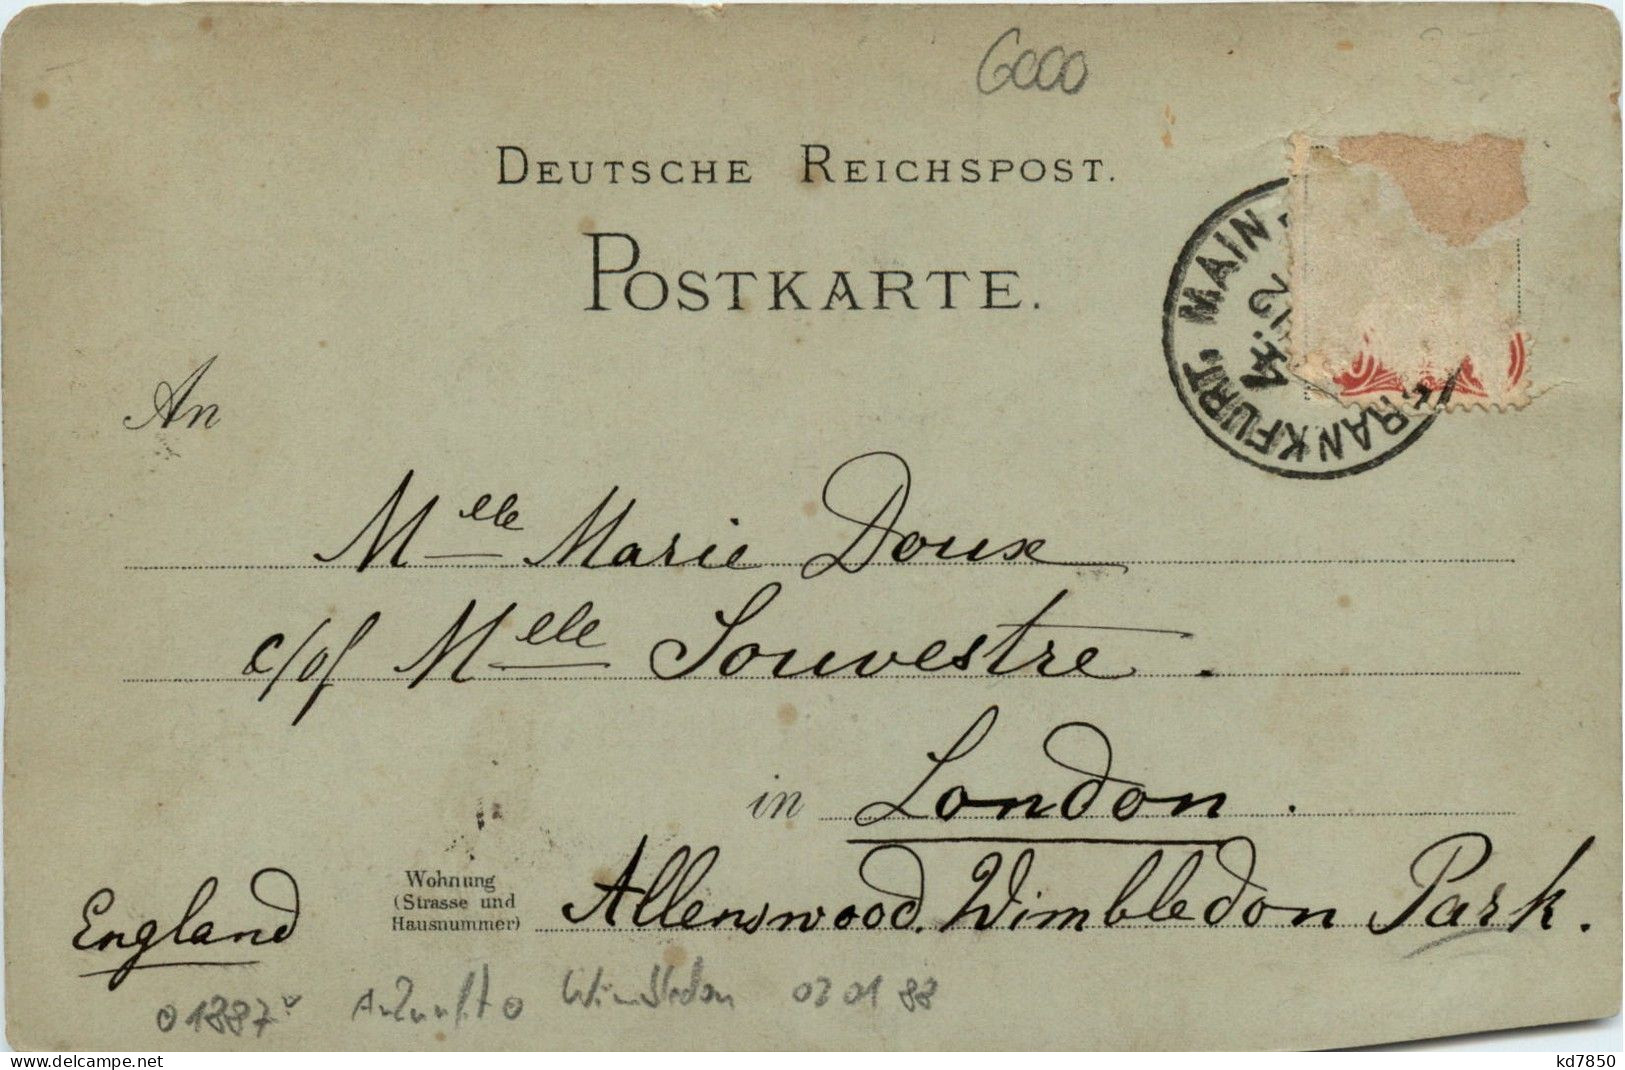 6000
DEUTSCHE REICHSPOST.
POSTKARTE.
FRANKFURT. MAIN.
An
Mlle Marie Doux
c/of Mlle Souvestre.
in London.
Wohnung
(Strasse und
Hausnummer)
Allenswood. Wimbledon Park.
England
1887 Ankunft Wimbledon 03 01 88
www.delcampe.net
kd7850